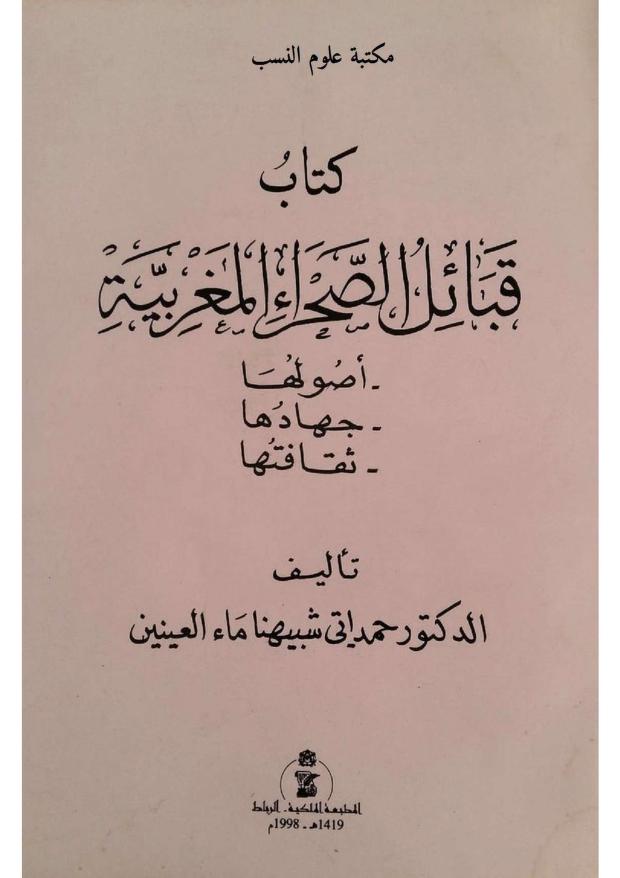 مكتبة علوم النسب
كتابُ
قَبَائِلُ الصَّحْرَاءِ المَغْرِبِيَّةِ
- أصُولهُا
- جهادُها
- ثقافتُها
تأليف
الدكتور حمداتي شبيهنا مَاء العينين
المطبعة الملكية - الرباط
1419هـ - 1998م